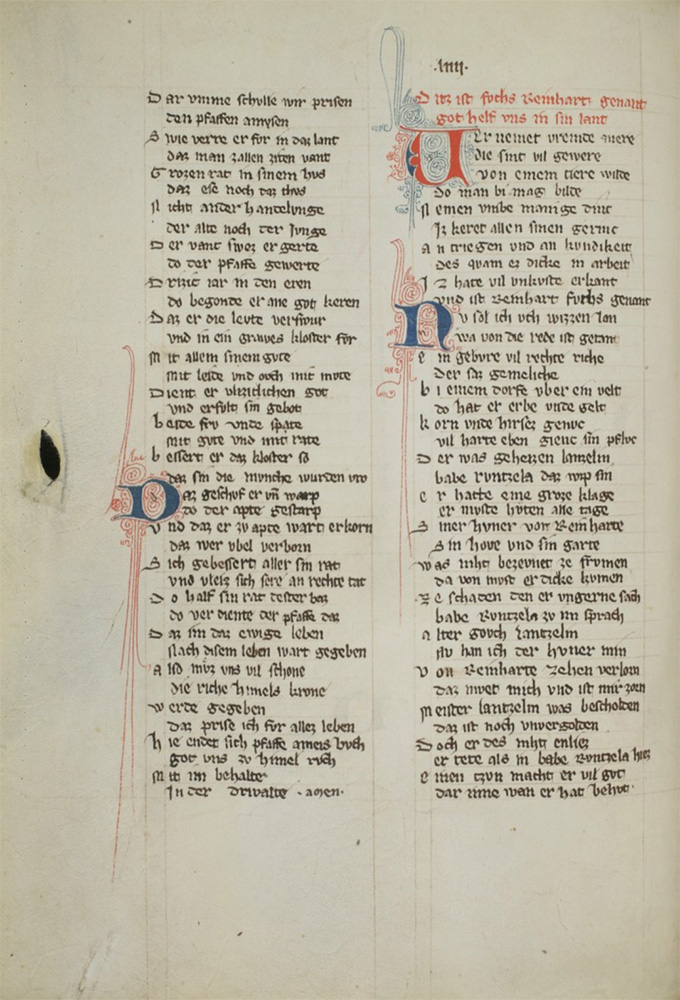 Dar vmme schvlle wir prisen
den pfaffen amysen
Swie verre er fvr in daz lant
daz man zallen ziten vant
Grozen rat in sinem hvs
daz ese noch daz thvs
Nicht ander handelvnge
der alte noch der Jvnge
Der vant swez er gerte
do der pfaffe gewerte
Drizic iar in den eren
do begonde er ane got keren
Daz er die levte verswvr
vnd in ein grawes kloster fvr
Mit allem sinem gvte
mit leide vnd ovch mit mvte
Dient er vlizclichen got
vnd erfvlt sin gebot
beide frv vnde spate
mit gvte vnd mit rate
bessert er daz kloster so
daz sin die mvnche wurden vro
Daz geschvf er vn warp
do der apte gestarp
Vnd daz er zv apte wart erkorn
daz wer vbel verborn
Sich gebessert aller sin rat
vnd vleiz sich sere an rechte tat
Do half sin rat dester baz
do verdiente der pfaffe daz
Daz im daz ewige leben
Nach disem leben wart gegeben
Also mvz vns vil schone
die riche himels krone
werde gegeben
daz prise ich fvr allez leben
hie endet sich pfaffe ameis bvch
got vns zv himel rvch
Mit im behalte
In der drivalte . amen .
.iiii.
Ditz ist fvchs Reinhart genant
got helf vns in sin lant
Er nemet vremde mere
die sint vil gewere
von einem tiere wilde
do man bi mag bilde
Nemen vmbe manige dinc
Iz keret allen sinen geriNc
an triegen vnd an kvndikeit
des qvam ez dicke in arbeit
Iz hate vil vnkvste erkant
vnd ist Reinhart fvchs genant
Nv sol ich vch wizzen lan
wa von die rede ist getan
ein gebvre vil rechte riche
der saz gemeliche
bi einem dorfe vber ein velt
do hat er erbe vnde gelt
korn vnde hirsez genvc
vil harte eben gienc sin pflvc
Der was geheizen lanzelin
babe rvntzela daz wip sin
er hatte eine groze klage
er mvste hvten alle tage
Siner hvner von Reinharte
Sin hove vnd sin garte
was niht bezevnet ze frvmen
da von mvst er dicke kvmen
Ze schaden den er vngerne sach
babe Rvntzela zv im sprach
alter govch lantzelin
Nv han ich der hvner min
von Reinharte zehen verlorn
daz mvet mich vnd ist mir zorn
Meister lantzelin was bescholden
daz ist noch vnvergolden
Doch er des niht enliez
er tete als in babe Rvntzela hiez
einen tzvn macht er vil gvt
dar inne wan er hat behvt